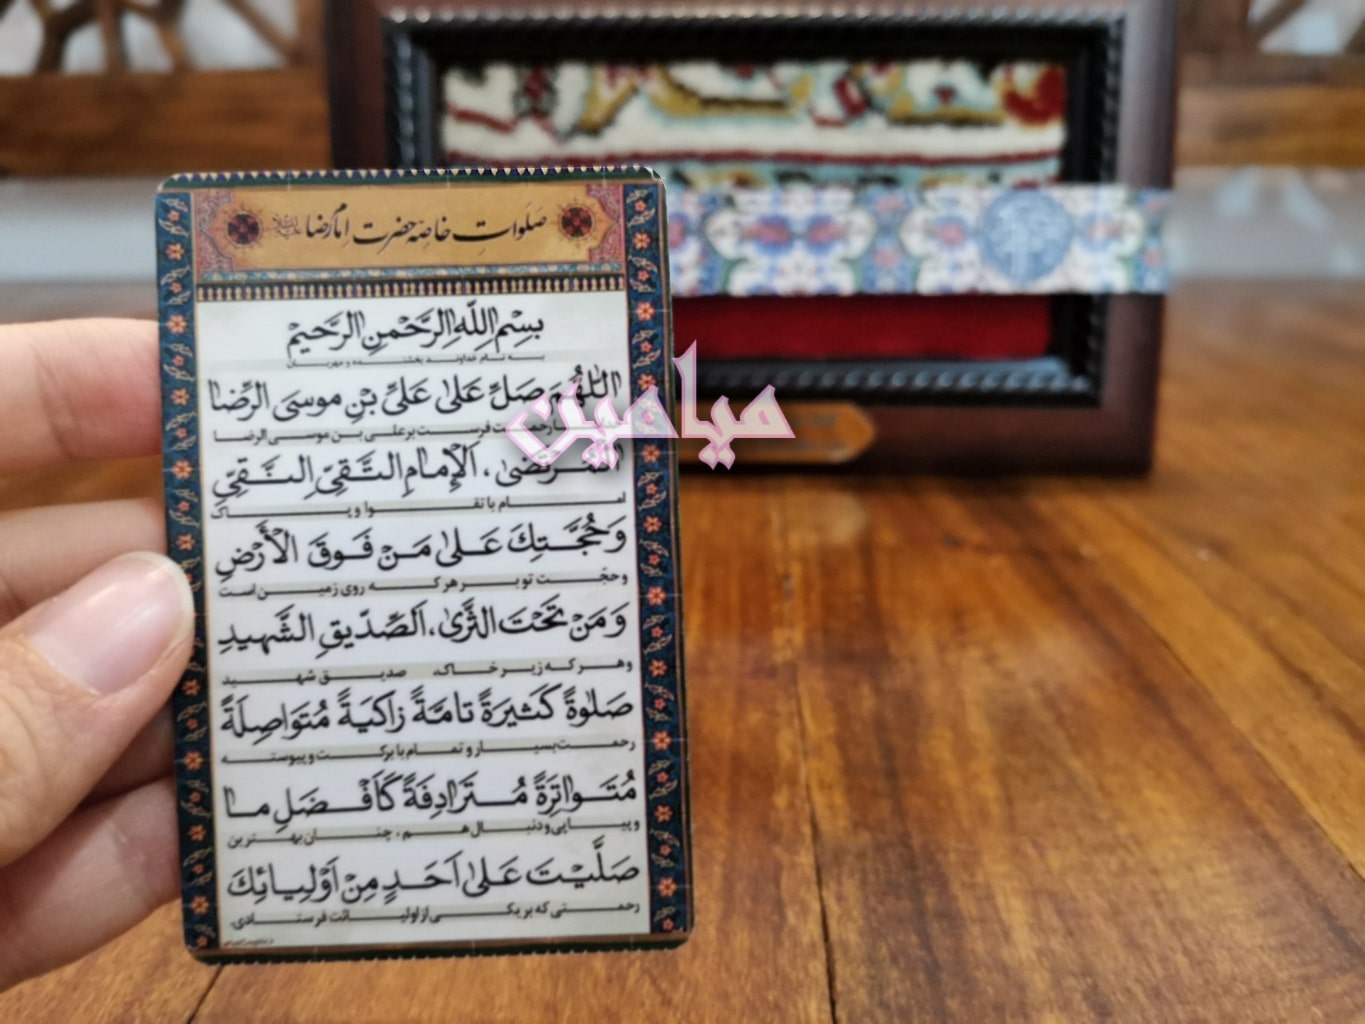 صَلَوات خاصّه حضرت امام رضا
بِسْمِ اللّٰهِ الرَّحْمٰنِ الرَّحیمْ
به نام خداوند بخشنده و مهربان
اَللّٰهُمَّ صَلِّ عَلیٰ عَلیِّ بْنِ موسَی الرِّضَا
رحمت فرست بر علی بن موسی الرضا
میامین
الْمُرْتَضیٰ، اَلْاِمامِ التَّقِیِّ النَّقِیِّ
امام با تقوا و پاک
وَ حُجَّتِكَ عَلیٰ مَنْ فَوقَ الْأَرْضِ
و حجّت تو بر هر که روی زمین است
وَ مَنْ تَحْتَ الثَّریٰ، اَلصِّدّیقِ الشَّهیدِ
و هر که زیر خاک، صدیق شهید
صَلٰوةً كَثیرَةً تامَّةً زاكیَةً مُتَواصِلَةً
رحمت بسیار و تمام با برکت و پیوسته
مُتَواتِرَةً مُتَرادِفَةً كَأَفْضَلِ ما
و پیاپی و دنبال هم، چنان بهترین
صَلَّیْتَ عَلیٰ اَحَدٍ مِنْ اَوْلِیائِكَ
رحمتی که بر یکی از اولیائت فرستادی.